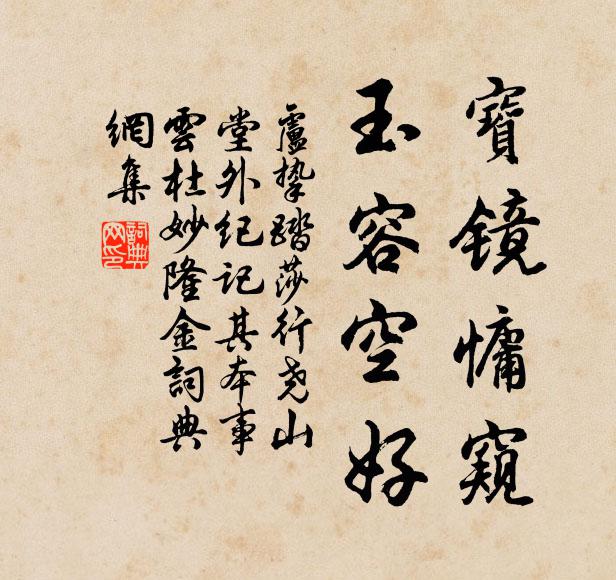 寶鏡慵窺
玉容空好
盧摯踏莎行尧山
堂外纪记其本事
雲杜妙隆金詞典
網集
詞典網印